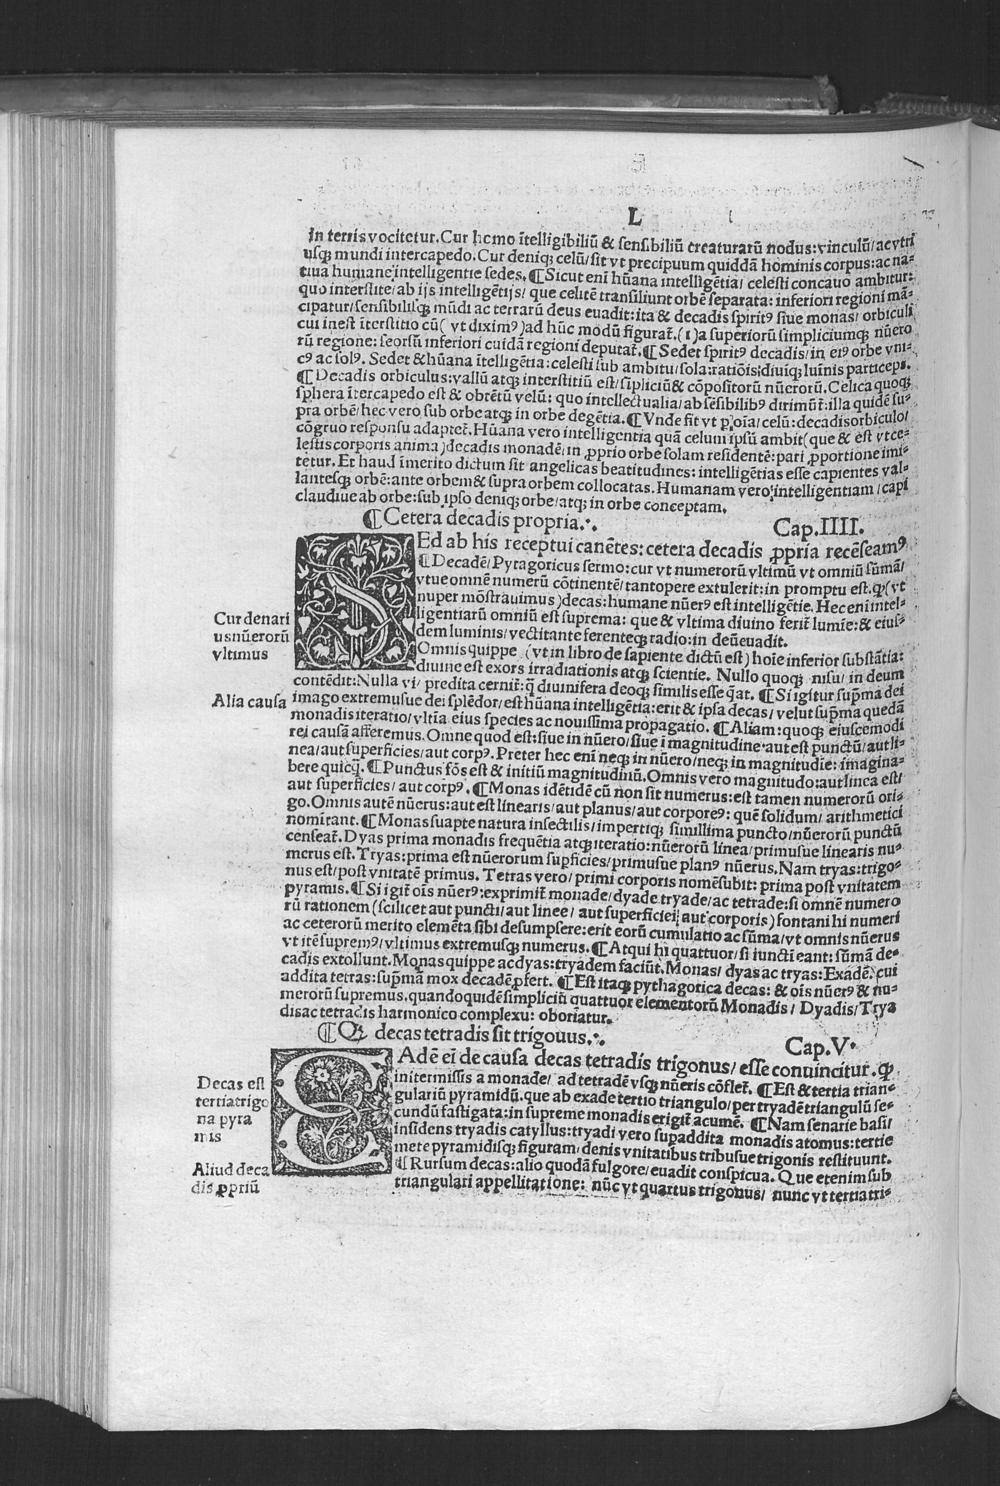 L
In terris vocitetur. Cur homo ĩtelligibiliũ & sensibiliũ creaturarũ nodus: vinculũ/ ac vtri
usqꝫ mundi intercapedo. Cur deniqꝫ celũ/ sit vt precipuum quiddã hominis corpus: ac na-
tiua humane intelligentie sedes. ¶ Sicut eni hũana intelligẽtia/ celesti concauo ambitur:
quo interstite/ ab ijs intelligẽtijs/ que celitẽ transiliunt orbẽ separata: inferiori regioni mã-
cipatur/ sensibiliiqꝫ mũdi ac terrarũ deus euadit: ita & decadis spiritꝰ siue monas/ orbiculi
cui inest ĩterstitio cũ( vt diximꝰ) ad hũc modũ figurat̃. (1)a superiorũ simpliciumqꝫ nũero
rũ regione: seorsũ inferiori cuidã regioni deputat̃. ¶ Sedet spiritꝰ decadis/ in eiꝰ orbe vni-
cꝰ ac solꝰ. Sedet & hũana ĩtelligẽtia: celesti sub ambitu/ sola: ratiõis: diuiqꝫ luĩnis particeps.
¶ Decadis orbiculus: vallũ atqꝫ interstitiũ est/ sĩpliciũ & cõpositorũ nũerorũ. Celica quoqꝫ
sphera ĩtercapedo est & obtẽtũ velũ: quo intellectualia/ ab sẽsibilibꝰ dirimũt̃: illa quidẽ su-
pra orbẽ/ hec vero sub orbe atqꝫ in orbe degẽtia. ¶ Vnde fit vt p̱ oĩa/ celũ: decadis orbiculo/
cõgruo responsu adaptet̃. Hũana vero intelligentia quã celum ipsũ ambit( que & est vt ce-
lestis corporis anima) decadis monadẽ/ in ꝓprio orbe solam residentẽ: pari ꝓportione imi-
tetur. Et haud ĩmerito dictum sit angelicas beatitudines: intelligẽtias esse capientes val-
lantesqꝫ orbẽ: ante orbem & supra orbem collocatas. Humanam vero intelligentiam/ capi
claudiue ab orbe: sub ipso deniqꝫ orbe/ atqꝫ in orbe conceptam.
¶ Cetera decadis propria. Cap. IIII.
SEd ab his receptui canẽtes: cetera decadis ꝓpria recẽseamꝰ
¶ Decadẽ/ Pytagoricus sermo: cur vt numerorũ vltimũ vt omniũ sũmã/
vtue omnẽ numerũ cõtinentẽ/ tantopere extulerit: in promptu est. qꝫ( vt
nuper mõstrauimus) decas: humane nũerꝰ est intelligẽtie. Hec eni intel-
ligentiarũ omniũ est suprema: que & vltima diuino ferit̃ lumĩe: & eius-
dem luminis/ vectitante ferenteqꝫ radio: in deũ euadit.
Omnis quippe (vt in libro de sapiente dictũ est) hoĩe inferior substãtia:
diuine est exors irradiationis atqꝫ scientie. Nullo quoqꝫ nisu/ in deum
contẽdit: Nulla vi/ predita cernit̃: q̃ diuinifera deoqꝫ similis esse q̃at. ¶ Si igitur sup̃ma dei
imago extremusue dei splẽdor/ est hũana intelligẽtia: erit & ipsa decas/ velut sup̃ma quedã
monadis iteratio/ vltĩa eius species ac nouissima propagatio. ¶ Aliam: quoqꝫ eiuscemodi
rei causã afferemus. Omne quod est: siue in nũero/ siue ĩ magnitudine: aut est punctũ/ aut li-
nea/ aut superficies/ aut corpꝰ. Preter hec eni neqꝫ in nũero/ neqꝫ in magnitudĩe: imagina-
bere quicq̃. ¶ Punctus fõs est & initiũ magnitudinũ. Omnis vero magnitudo: aut linea est/
aut superficies/ aut corpꝰ. ¶ Monas idẽtidẽ cũ non sit numerus: est tamen numerorũ ori-
go. Omnis autẽ nũerus: aut est linearis/ aut planus/ aut corporeꝰ: quẽ solidum/ arithmetici
nomĩtant. ¶ Monas suapte natura insectilis/ impertiqꝫ simillima puncto/ nũerorũ punctũ
censeat̃. Dyas prima monadis frequẽtia atqꝫ iteratio: nũerorũ linea/ primusue linearis nu-
merus est. Tryas: prima est nũerorum supficies/ primusue planꝰ nũerus. Nam tryas: trigo-
nus est/ post vnitatẽ primus. Tetras vero/ primi corporis nomẽ subit: prima post vnitatem
pyramis. ¶ Si igit̃ oĩs nũerꝰ: exprimit̃ monade/ dyade tryade/ ac tetrade: si omnẽ numero
rũ rationem (scilicet aut puncti/ aut linee/ aut superficiei/ aut corporis) fontani hi numeri
ac ceterorũ merito elemẽta sibi desumpsere: erit eorũ cumulatio ac sũma/ vt omnis nũerus
vt itẽ supremꝰ/ vltimus extremusqꝫ numerus. ¶ Atqui hi quattuor/ si iuncti eant: sũmã de-
cadis extollunt. Monas quippe ac dyas: tryadem faciũt. Monas/ dyas ac tryas: Exadẽ. cui
addita tetras: sup̃mã mox decadẽ ꝓfert. ¶ Est itaqꝫ pythagorica decas: & oĩs nũerꝰ & nu-
merorũ supremus. quandoquidẽ simpliciũ quattuor elementorũ Monadis/ Dyadis/ Trya
dis ac tetradis harmonico complexu: oboriatur.
¶ Qꝫ decas tetradis sit trigouus. Cap. V.
EAdẽ eĩ de causa decas tetradis trigonus/ esse conuincitur. qꝫ
initermissis a monade/ ad tetradẽ vsqꝫ nũeris cõflet̃. ¶ Est & tertia trian-
gulariũ pyramidũ. que ab exade tertio triangulo/ per tryadẽ triangulũ se-
cundũ fastigata: in supreme monadis erigit̃ acumẽ. ¶ Nam senarie basi/
insidens tryadis catyllus: tryadi vero supaddita monadis atomus: tertie
mete pyramidisqꝫ figuram/ denis vnitatibus tribusue trigonis restituunt.
¶ Rursum decas: alio quodã fulgore/ euadit conspicua. Que etenim sub
triangulari appellitatione: nũc vt quartus trigonus/ nunc vt tertia tri-
Cur denari
us nũerorũ
vltimus
Alia causa
Decas est
tertia trigo
na pyra
mis
Aliud deca
dis ꝓpriũ